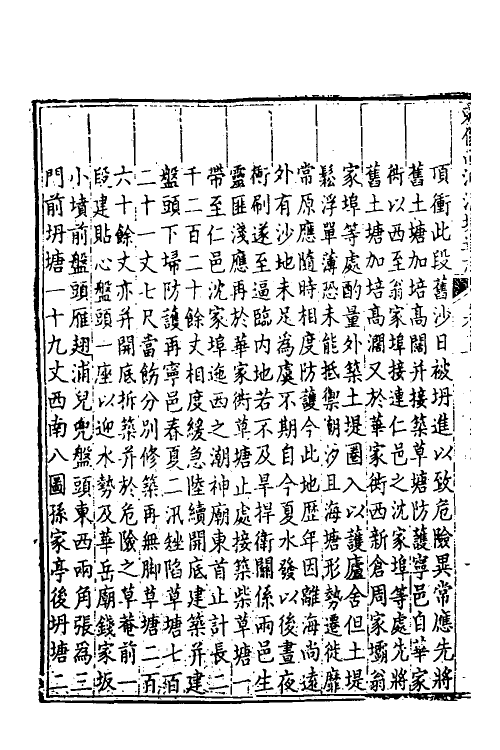 頂衝此段舊沙日被坍進以致危險異常應先將
舊土塘加培高闊并接築草塘防護寧邑自華家
衖以西至翁家埠接連仁邑之沈家埠等處先將
舊土塘加培高濶又於華家衖西新倉周家壩翁
家埠等處酌量外築土堤圈入以護廬舍但土堤
鬆浮單薄恐未能抵禦潮汐且海塘形勢遷徙靡
常原應隨時相度防護今此地歷年因離海尚遠
外有沙地未足為虞不期自今夏水發以後晝夜
衝刷遂至逼臨内地若不及早捍衛關係兩邑生
靈匪淺應再於華家衖草塘止處接築柴草塘一
帶至仁邑沈家埠迤西之潮神廟東首止計長二
千二百二十餘丈相度緩急陸續開底建築并建
盤頭下埽防護再寧邑春夏二汛矬陷草塘七百
二十一丈七尺當飭分别修築再無脚草塘二百
六十餘丈亦并開底拆築并於危險之草菴前一
段建貼心盤頭一座以迎水勢及華岳廟錢家坂
小墳前盤頭雁翅浦兒兜盤頭東西兩角張爲三
門前坍塘一十九丈西南八圖孫家亭後坍塘二